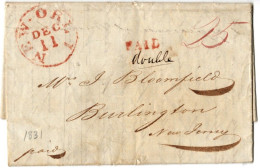 NEW-ORK
DEC
11
PAID
25
double
Mr. J Bloomfield
Burlington
New Jersey
1831
paid